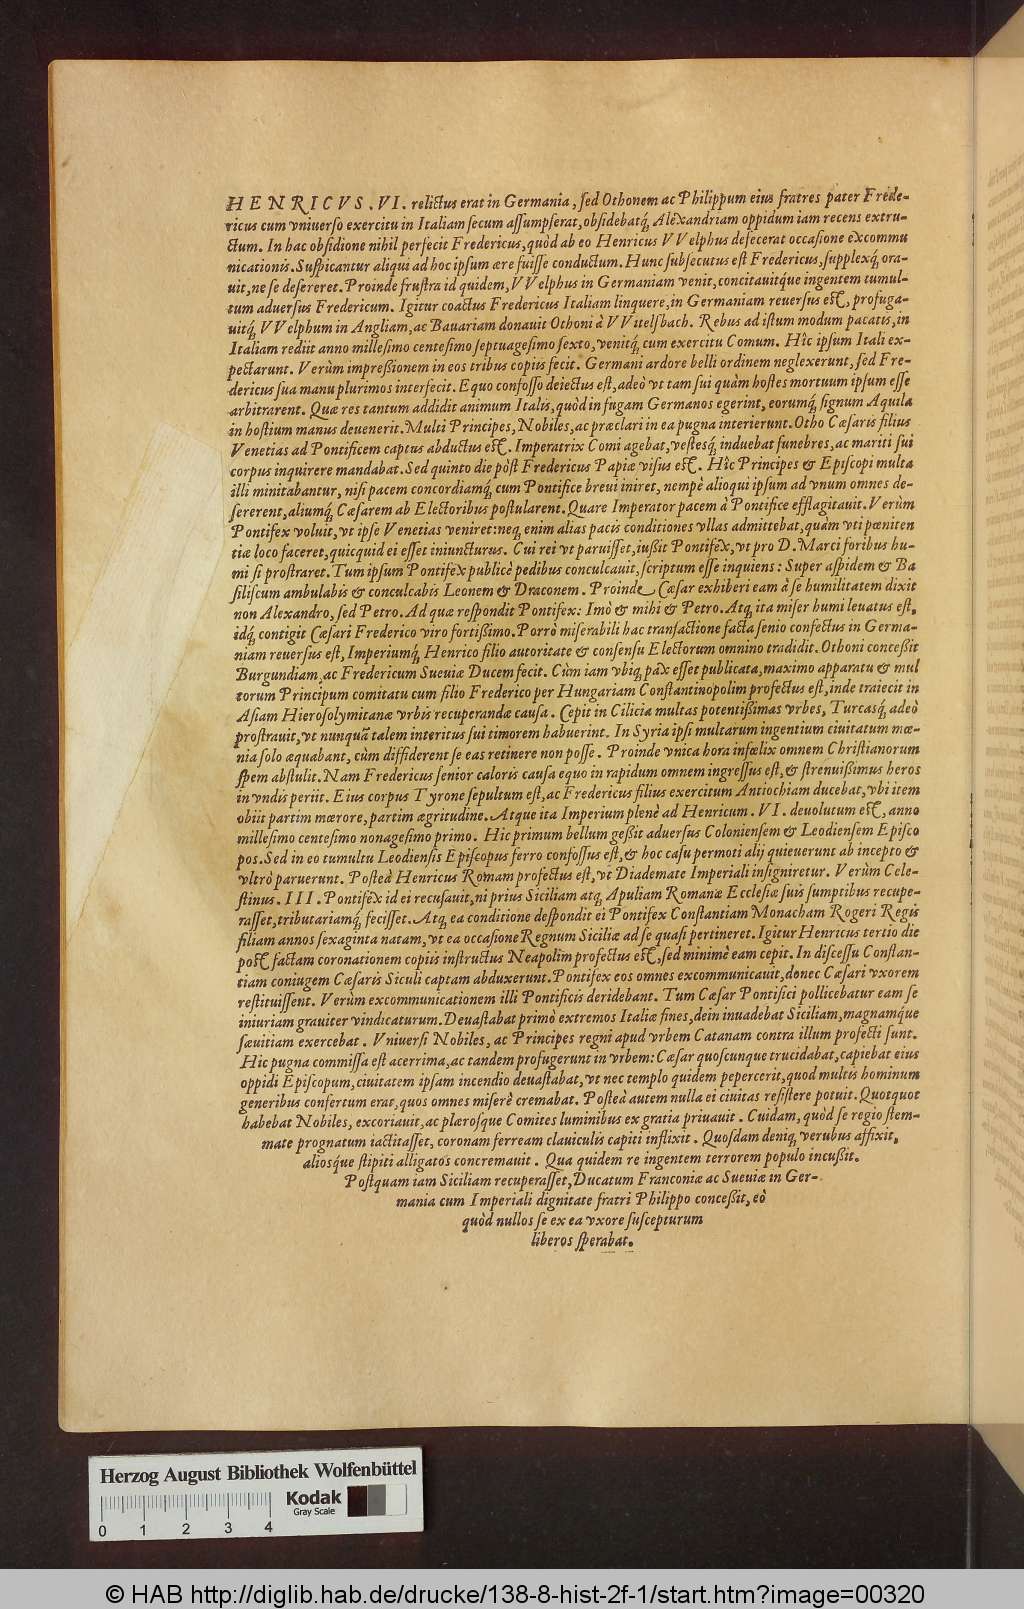 HENRICVS. VI. relictus erat in Germania, sed Othonem ac Philippum eius fratres pater Frede-
ricus cum vniuerso exercitu in Italiam secum assumpserat, obsidebatq́; Alexandriam oppidum iam recens extru-
ctum. In hac obsidione nihil perfecit Fredericus, quòd ab eo Henricus VVelphus defecerat occasione excommu
nicationis. Suspicantur aliqui ad hoc ipsum ære fuisse conductum. Hunc subsecutus est Fredericus, supplexq́; ora-
uit, ne se desereret. Proinde frustra id quidem, VVelphus in Germaniam venit, concitauitq́ue ingentem tumul-
tum aduersus Fredericum. Igitur coactus Fredericus Italiam linquere, in Germaniam reuersus est, profuga-
uitq́; VVelphum in Angliam, ac Bauariam donauit Othoni à VVitelsbach. Rebus ad istum modum pacatis, in
Italiam rediit anno millesimo centesimo septuagesimo sexto, venitq́; cum exercitu Comum. Hîc ipsum Itali ex-
pectarunt. Verùm impreßionem in eos tribus copiis fecit. Germani ardore belli ordinem neglexerunt, sed Fre-
dericus sua manu plurimos interfecit. Equo confosso deiectus est, adeò vt tam sui quàm hostes mortuum ipsum esse
arbitrarent. Quæ res tantum addidit animum Italis, quòd in fugam Germanos egerint, eorumq́; signum Aquila
in hostium manus deuenerit. Multi Principes, Nobiles, ac præclari in ea pugna interierunt. Otho Cæsaris filius
Venetias ad Pontificem captus abductus est. Imperatrix Comi agebat, vestesq́; induebat funebres, ac mariti sui
corpus inquirere mandabat. Sed quinto die pòst Fredericus Papiæ visus est. Hîc Principes & Episcopi multa
illi minitabantur, nisi pacem concordiamq́; cum Pontifice breui iniret, nempè alioqui ipsum ad vnum omnes de-
sererent, aliumq́; Cæsarem ab Electoribus postularent. Quare Imperator pacem à Pontifice efflagitauit. Verùm
Pontifex voluit, vt ipse Venetias veniret: neq; enim alias pacis conditiones vllas admittebat, quàm vti pœniten
tiæ loco faceret, quicquid ei esset iniuncturus. Cui rei vt paruisset, iußit Pontifex, vt pro D. Marci foribus hu-
mi si prostraret. Tum ipsum Pontifex publicè pedibus conculcauit, scriptum esse inquiens: Super aspidem & Ba
siliscum ambulabis & conculcabis Leonem & Draconem. Proinde Cæsar exhiberi eam à se humilitatem dixit
non Alexandro, sed Petro. Ad quæ respondit Pontifex: Imò & mihi & Petro. Atq; ita miser humi leuatus est.
idq́; contigit Cæsari Frederico viro fortißimo. Porrò miserabili hac transactione facta senio confectus in Germa-
niam reuersus est, Imperiumq́; Henrico filio autoritate & consensu Electorum omnino tradidit. Othoni conceßit
Burgundiam, ac Fredericum Sueuiæ Ducem fecit. Cùm iam vbiq; pax esset publicata, maximo apparatu & mul
torum Principum comitatu cum filio Frederico per Hungariam Constantinopolim profectus est, inde traiecit in
Asiam Hierosolymitanæ vrbis recuperandæ causa. Cepit in Cilicia multas potentißimas vrbes, Turcasq́; adeò
prostrauit, vt nunquā talem interitus sui timorem habuerint. In Syria ipsi multarum ingentium ciuitatum mœ-
nia solo æquabant, cùm diffiderent se eas retinere non posse. Proinde vnica hora infœlix omnem Christianorum
spem abstulit. Nam Fredericus senior caloris causa equo in rapidum omnem ingressus est, & strenuißimus heros
in vndis periit. Eius corpus Tyrone sepultum est, ac Fredericus filius exercitum Antiochiam ducebat, vbi item
obiit partim mœrore, partim ægritudine. Atque ita Imperium plenè ad Henricum. VI. deuolutum est, anno
millesimo centesimo nonagesimo primo. Hic primum bellum geßit aduersus Coloniensem & Leodiensem Episco
pos. Sed in eo tumultu Leodiensis Episcopus ferro confossus est, & hoc casu permoti alij quieuerunt ab incepto &
vltrò paruerunt. Posteà Henricus Romam profectus est, vt Diademate Imperiali insigniretur. Verùm Cele-
stinus. III. Pontifex id ei recusauit, ni prius Siciliam atq; Apuliam Romanæ Ecclesiæ suis sumptibus recupe-
rasset, tributariamq́; fecisset. Atq; ea conditione despondit ei Pontifex Constantiam Monacham Rogeri Regis
filiam annos sexaginta natam, vt ea occasione Regnum Siciliæ ad se quasi pertineret. Igitur Henricus tertio die
post factam coronationem copiis instructus Neapolim profectus est, sed minimè eam cepit. In discessu Constan-
tiam coniugem Cæsaris Siculi captam abduxerunt. Pontifex eos omnes excommunicauit, donec Cæsari vxorem
restituissent. Verùm excommunicationem illi Pontificis deridebant. Tum Cæsar Pontifici pollicebatur eam se
iniuriam grauiter vindicaturum. Deuastabat primò extremos Italiæ fines, dein inuadebat Siciliam, magnamq́ue
sæuitiam exercebat. Vniuersi Nobiles, ac Principes regni apud vrbem Catanam contra illum profecti sunt.
Hic pugna commissa est acerrima, ac tandem profugerunt in vrbem: Cæsar quoscunque trucidabat, capiebat eius
oppidi Episcopum, ciuitatem ipsam incendio deuastabat, vt nec templo quidem pepercerit, quod multis hominum
generibus confertum erat, quos omnes miserè cremabat. Posteà autem nulla ei ciuitas resistere potuit. Quotquot
habebat Nobiles, excoriauit, ac plærosque Comites luminibus ex gratia priuauit. Cuidam, quòd se regio stem-
mate prognatum iactitasset, coronam ferream clauiculis capiti inflixit. Quosdam deniq; verubus affixit,
aliosq́ue stipiti alligatos concremauit. Qua quidem re ingentem terrorem populo incußit.
Postquam iam Siciliam recuperasset, Ducatum Franconiæ ac Sueuiæ in Ger-
mania cum Imperiali dignitate fratri Philippo conceßit, eò
quòd nullos se ex ea vxore suscepturum
liberos sperabat.
Herzog August Bibliothek Wolfenbüttel
Kodak
Gray Scale
0 1 2 3 4
© HAB http://diglib.hab.de/drucke/138-8-hist-2f-1/start.htm?image=00320